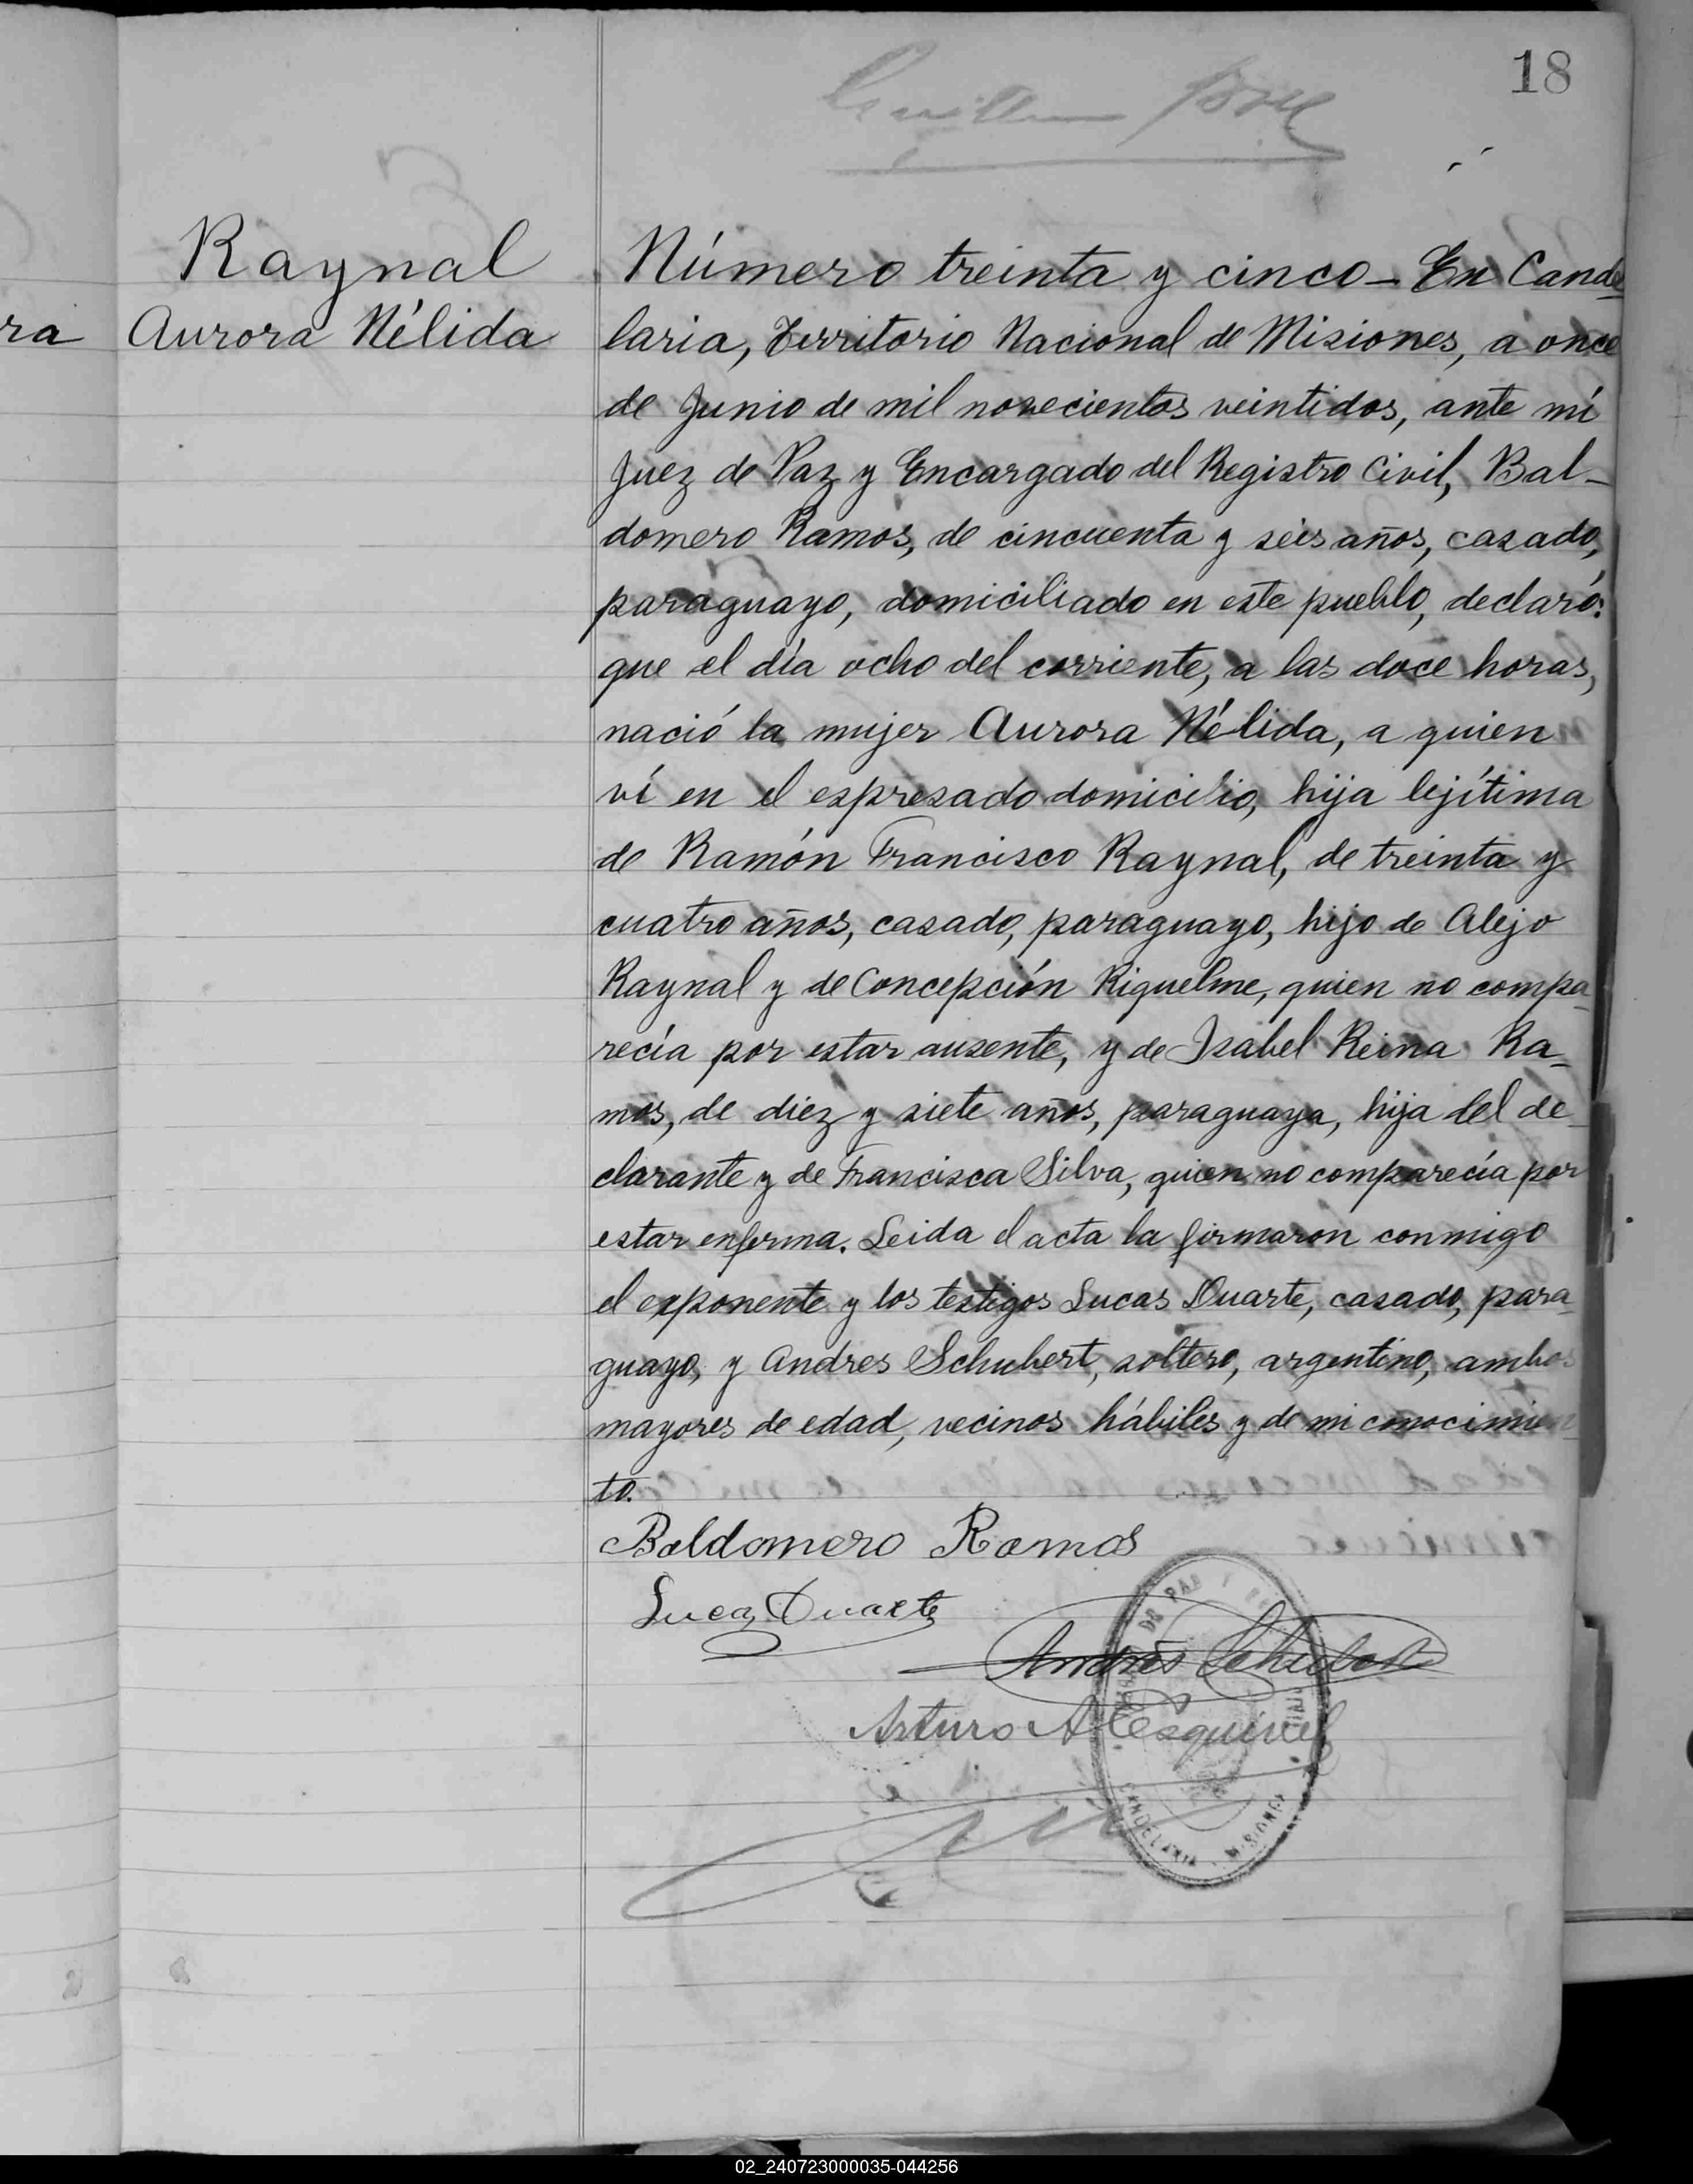 18
Raynal
Aurora Nélida
ra
Número treinta y cinco - En Cande
laria, Territorio Nacional de Misiones, a once
de Junio de mil novecientos veintidos, ante mí
Juez de Paz y Encargado del Registro Civil, Bal-
domero Ramos, de cincuenta y seis años, casado,
paraguayo, domiciliado en este pueblo, declaró:
que el día ocho del corriente, a las doce horas,
nació la mujer Aurora Nélida, a quien
ví en el espresado domicilio, hija lejítima
de Ramón Francisco Raynal, de treinta y
cuatro años, casado, paraguayo, hijo de Alejo
Raynal y de Concepción Riquelme, quien no compa-
recía por estar ausente, y de Isabel Reina Ra-
mos, de diez y siete años, paraguaya, hija del de-
clarante y de Francisca Silva, quien no comparecía por
estar enferma. Leida el acta la firmaron conmigo
el exponente y los testigos Lucas Duarte, casado, para-
guayo, y Andres Schubert, soltero, argentino, ambos
mayores de edad, vecinos hábiles y de mi conocimien-
to.
Baldomero Ramos
Lucas Duarte
Andrés Schubert
Arturo A Esquivel
CANDELARIA - MISIONES
02_240723000035-044256